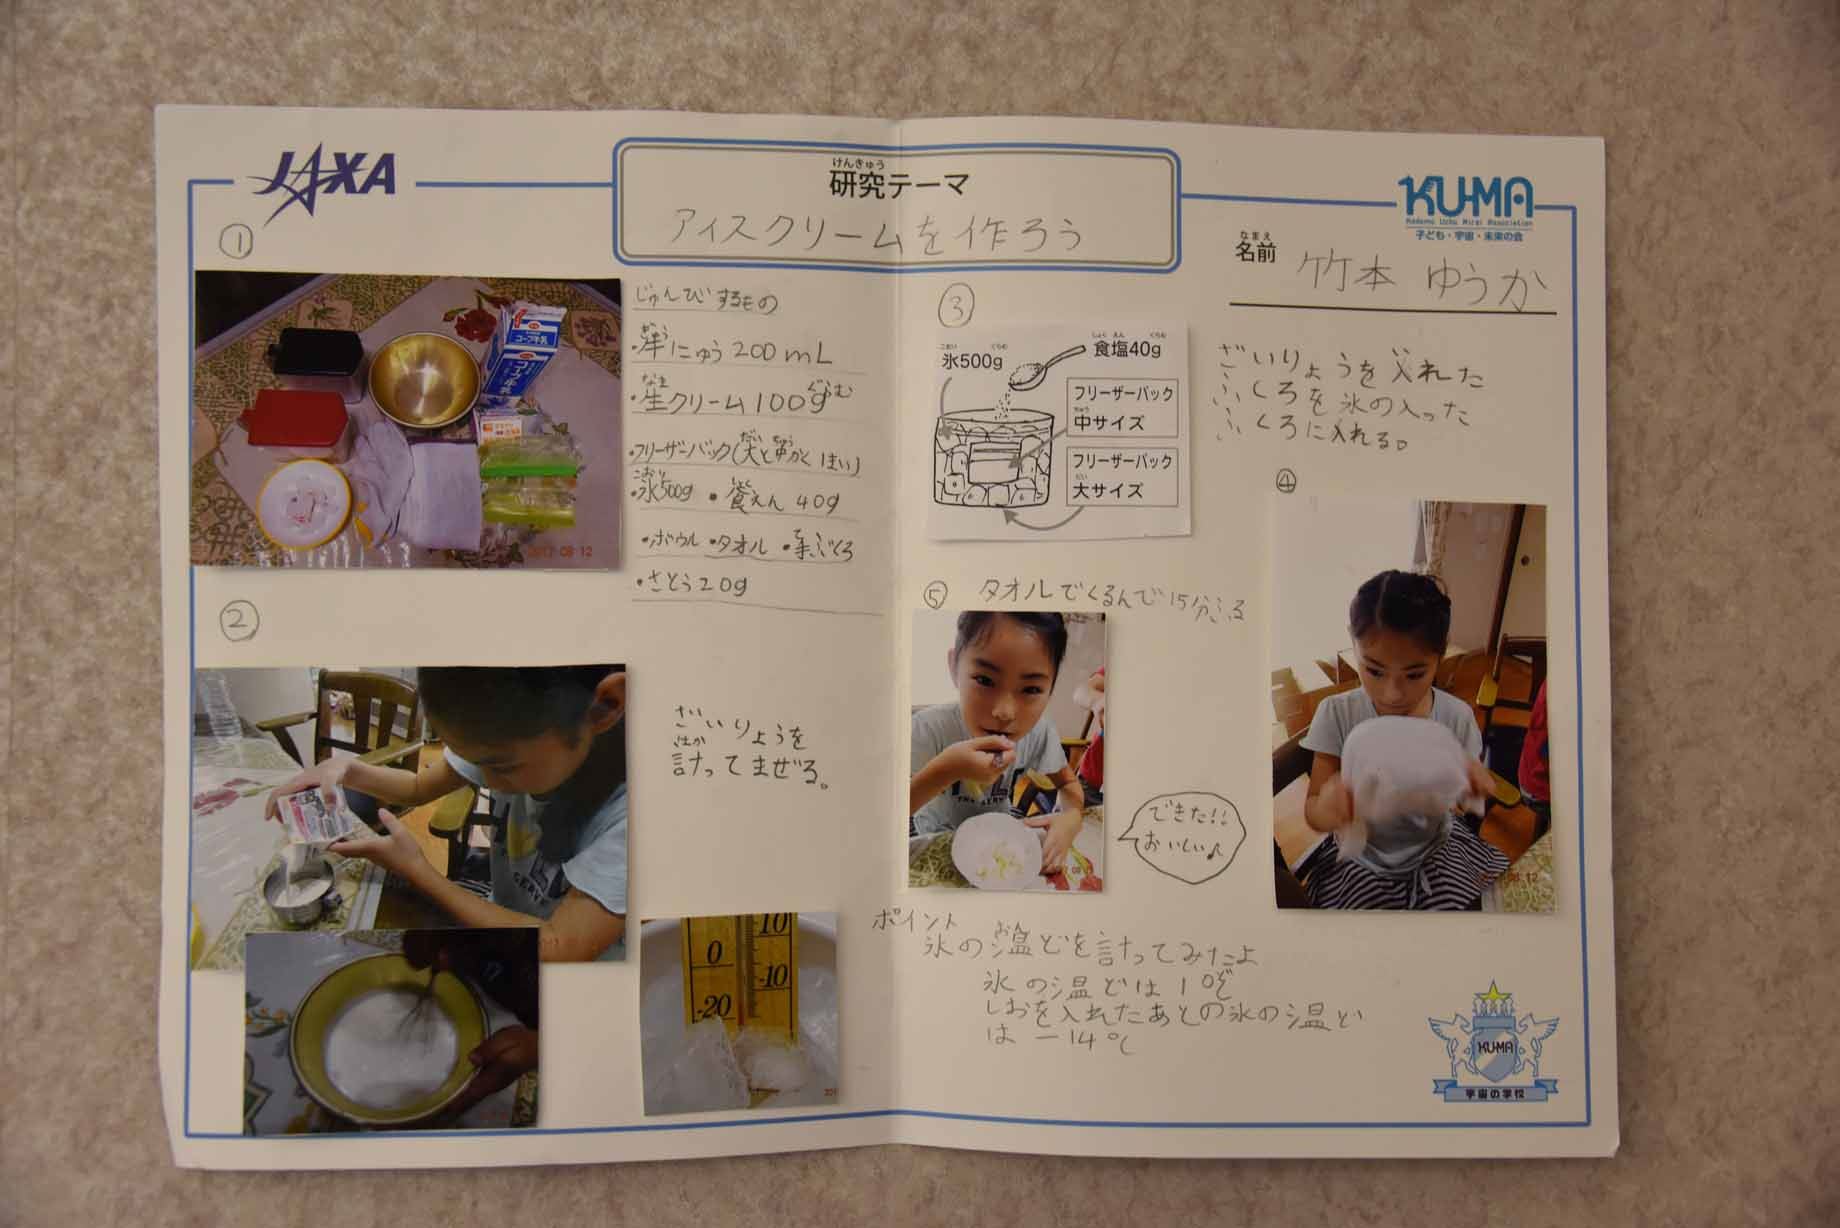 JAXA
けんきゅう
研究テーマ
アイスクリームを作ろう
KU-MA
Kodomo Uchu Mirai Association
子ども・宇宙・未来の会
なまえ
名前
竹本 ゆうか
①
じゅんびするもの
・牛にゅう 200mL
なま ぐらむ
・生クリーム 100g
・フリーザーバック(大と中かく1まい)
こおり
・氷500g ・食えん 40g
・ボウル ・タオル ・手ぶくろ
・さとう20g
コープ牛乳
2017 08 12
②
ざいりょうを
はか
計ってまぜる。
③
しょく えん ぐらむ
食塩40g
こおり ぐらむ
氷500g
フリーザーバック
ちゅう
中サイズ
フリーザーバック
だい
大サイズ
ざいりょうを入れた
ふくろを氷の入った
ふくろに入れる。
④
⑤
タオルでくるんで15分ふる
できた!!
おいしい♪
0
10
-10
-20
ポイント
氷の温どを計ってみたよ
氷の温どは1℃で
しおを入れたあとの氷の温ど
は-14℃
KU-MA
宇宙の学校